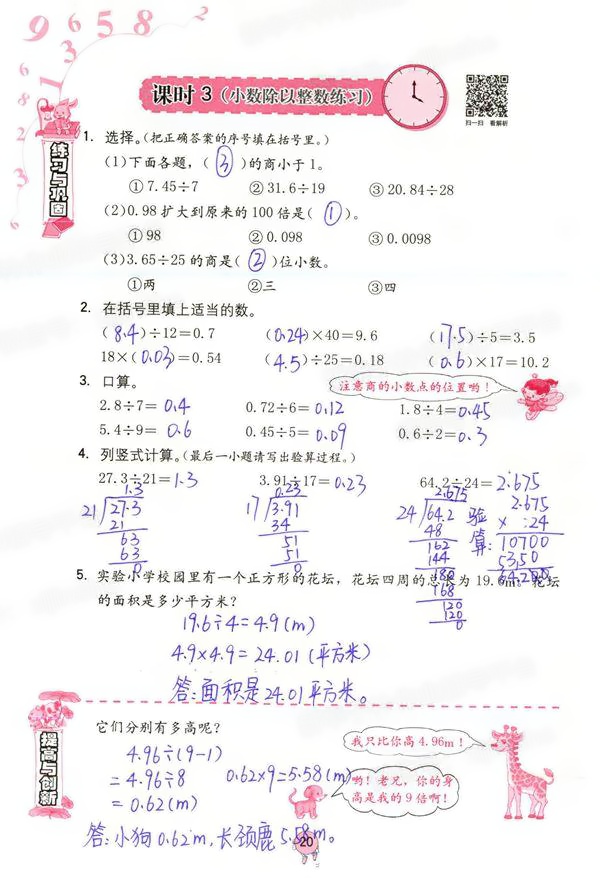 9 6 5 8
课时 3 (小数除以整数练习)
扫一扫 看解析
练习与巩固
1. 选择。(把正确答案的序号填在括号里。)
(1)下面各题，( ③ )的商小于1。
①7.45÷7 ②31.6÷19 ③20.84÷28
(2)0.98扩大到原来的100倍是( ① )。
①98 ②0.098 ③0.0098
(3)3.65÷25的商是( ② )位小数。
①两 ②三 ③四
2. 在括号里填上适当的数。
(8.4)÷12=0.7 (0.24)×40=9.6 (17.5)÷5=3.5
18×(0.03)=0.54 (4.5)÷25=0.18 (0.6)×17=10.2
3. 口算。
注意商的小数点的位置哟！
2.8÷7=0.4 0.72÷6=0.12 1.8÷4=0.45
5.4÷9=0.6 0.45÷5=0.09 0.6÷2=0.3
4. 列竖式计算。(最后一小题请写出验算过程。)
27.3÷21=1.3 3.91÷17=0.23 64.2÷24=2.675
1.3 0.23 2.675
21 27.3 17 3.91 24 64.2 验算: 2.675
21 34 48 × 24
63 51 162 10700
63 51 144 5350
0 0 180 64.200
168
120
120
0
5. 实验小学校园里有一个正方形的花坛，花坛四周的总长为19.6m，花坛
的面积是多少平方米？
19.6÷4=4.9(m)
4.9×4.9=24.01(平方米)
答:面积是24.01平方米。
提高与创新
它们分别有多高呢？
我只比你高4.96m！
哟！老兄，你的身
高是我的9倍啊！
4.96÷(9-1)
=4.96÷8 0.62×9=5.58(m)
=0.62(m)
答:小狗0.62m,长颈鹿5.58m。
20